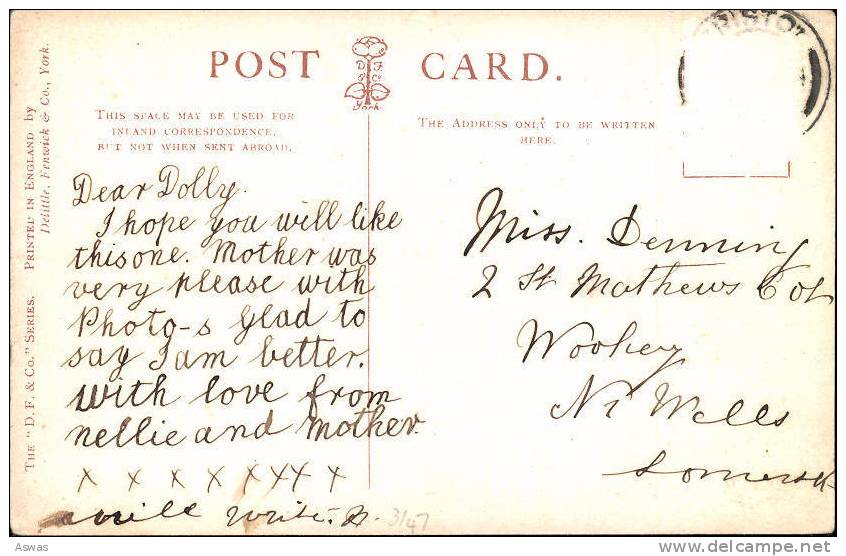 POST CARD.
D F
& Co
York
THIS SPACE MAY BE USED FOR
INLAND CORRESPONDENCE,
BUT NOT WHEN SENT ABROAD.
THE ADDRESS ONLY TO BE WRITTEN
HERE.
THE "D. F. & CO." SERIES. PRINTED IN ENGLAND by
Delittle, Fenwick & Co., York.
Dear Dolly.
I hope you will like
this one. Mother was
very please with
Photo-s Glad to
say I am better.
with love from
nellie and Mother.
x x x x x x x x
will write.
3/47
Miss. Denning
2 St Mathews Cot
Wookey
Nr Wells
Somerset
Aswas
www.delcampe.net